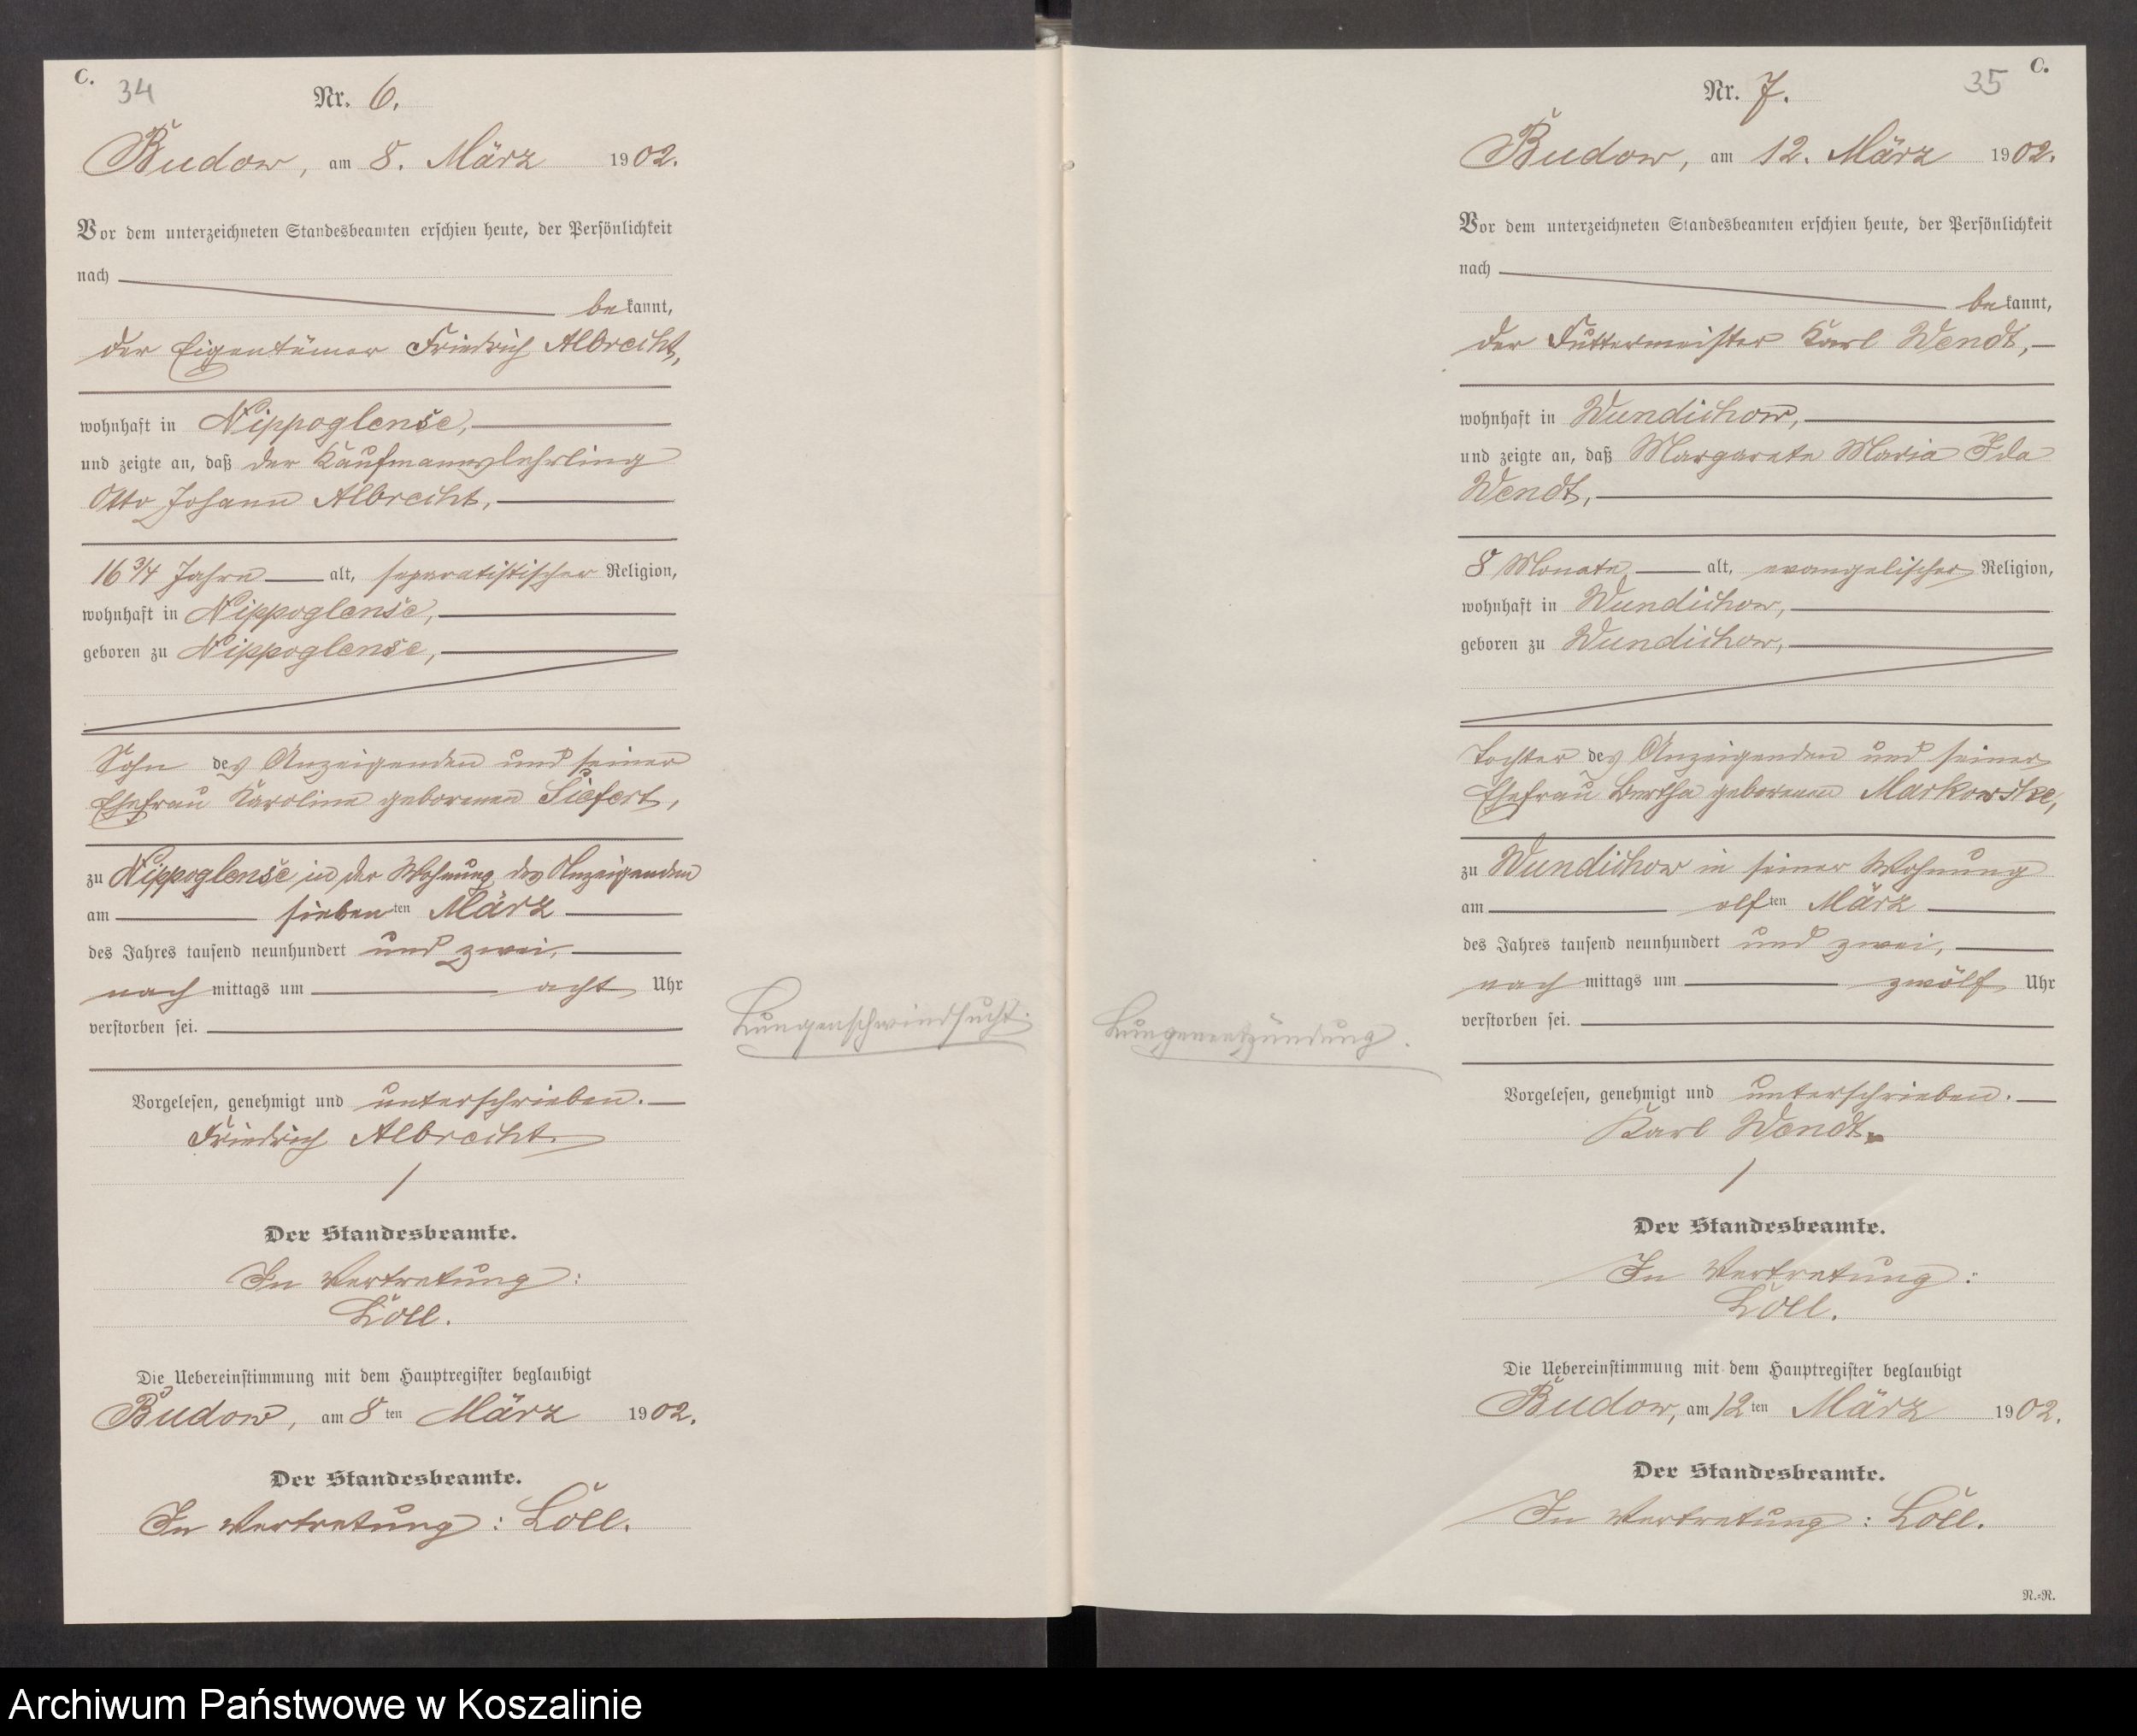 C.
34
Nr. 6.
Budow, am 8. März 1902.
Vor dem unterzeichneten Standesbeamten erschien heute, der Persönlichkeit
nach
bekannt,
der Eigentümer Friedrich Albrecht,
wohnhaft in Nippoglense,
und zeigte an, daß der Kaufmannslehrling
Otto Johann Albrecht,
16 3/4 Jahre alt, separatistischer Religion,
wohnhaft in Nippoglense,
geboren zu Nippoglense,
Sohn des Anzeigenden und seiner
Ehefrau Karoline geborenen Siefert,
zu Nippoglense in der Wohnung des Anzeigenden
am siebenten März
des Jahres tausend neunhundert und zwei,
nachmittags um acht Uhr
verstorben sei.
Lungenschwindsucht.
Vorgelesen, genehmigt und unterschrieben.
Friedrich Albrecht.
Der Standesbeamte.
In Vertretung:
Löll.
Die Uebereinstimmung mit dem Hauptregister beglaubigt
Budow, am 8ten März 1902.
Der Standesbeamte.
In Vertretung: Löll.
C.
35
Nr. 7.
Budow, am 12. März 1902.
Vor dem unterzeichneten Standesbeamten erschien heute, der Persönlichkeit
nach
bekannt,
der Futtermeister Karl Wendt,
wohnhaft in Wundichow,
und zeigte an, daß Margarete Maria Ida
Wendt,
8 Monate alt, evangelischer Religion,
wohnhaft in Wundichow,
geboren zu Wundichow,
Tochter des Anzeigenden und seiner
Ehefrau Bertha geborenen Markowske,
zu Wundichow in seiner Wohnung
am elften März
des Jahres tausend neunhundert und zwei,
nachmittags um zwölf Uhr
verstorben sei.
Lungenentzündung.
Vorgelesen, genehmigt und unterschrieben.
Karl Wendt.
Der Standesbeamte.
In Vertretung:
Löll.
Die Uebereinstimmung mit dem Hauptregister beglaubigt
Budow, am 12ten März 1902.
Der Standesbeamte.
In Vertretung: Löll.
N.=N.
Archiwum Państwowe w Koszalinie